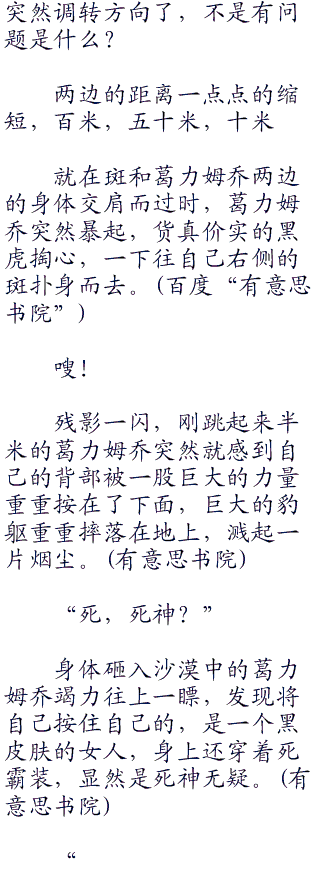 突然调转方向了，不是有问
题是什么？
两边的距离一点点的缩
短，百米，五十米，十米
就在斑和葛力姆乔两边
的身体交肩而过时，葛力姆
乔突然暴起，货真价实的黑
虎掏心，一下往自己右侧的
斑扑身而去。(百度“有意思
书院”)
嗖！
残影一闪，刚跳起来半
米的葛力姆乔突然就感到自
己的背部被一股巨大的力量
重重按在了下面，巨大的豹
躯重重摔落在地上，溅起一
片烟尘。(有意思书院)
“死，死神？”
身体砸入沙漠中的葛力
姆乔竭力往上一瞟，发现将
自己按住自己的，是一个黑
皮肤的女人，身上还穿着死
霸装，显然是死神无疑。(有
意思书院)
“